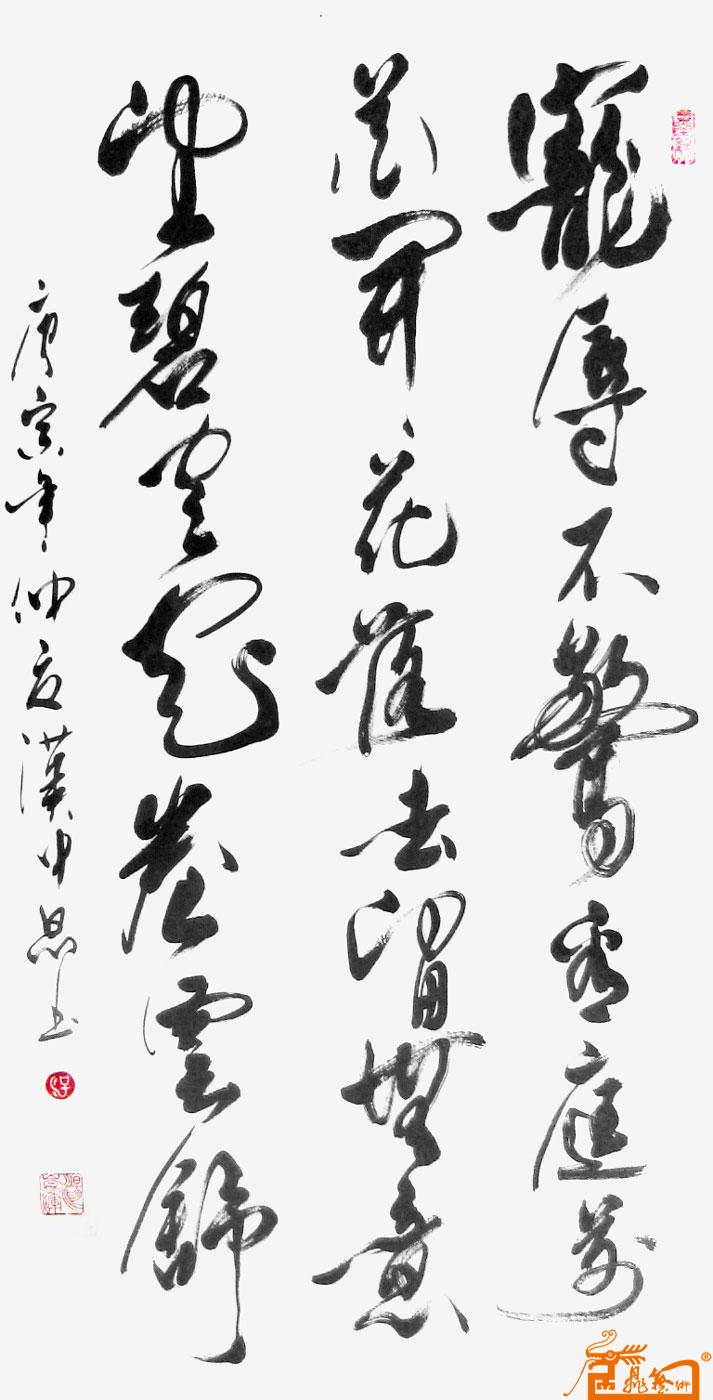 寵辱不驚看庭前
花開花落去留無意
望碧空雲卷雲舒
庚寅年仲夏漢中